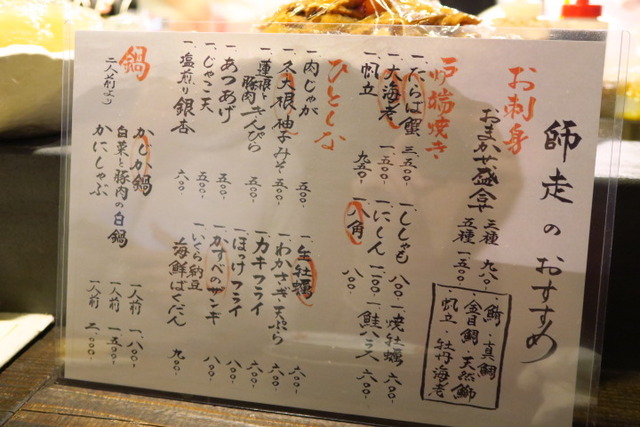 師走のおすすめ
お刺身
おまかせ盛合せ
三種 九八〇-
五種 一五〇〇-
・真鯛
・金目鯛・天然鰤
・帆立・牡丹海老
炉端焼き
一、たらば蟹 三、五〇〇-
一、大海老 一、五〇〇-
一、帆立 九五〇-
一、ししゃも 八〇〇-
一、にしん 一二〇〇-
一、八角 八〇〇-
一、焼牡蠣 六〇〇-
一、鮭ハラス 六〇〇-
ひとしな
一、肉じゃが 五〇〇-
一、久大根 柚子みそ 五〇〇-
一、蓮根と豚肉きんぴら 五〇〇-
一、あつあげ 五〇〇-
一、じゃこ天 五〇〇-
一、塩煎り銀杏 六〇〇-
一、生牡蠣 六〇〇-
一、わかさぎ天ぷら 六〇〇-
一、カキフライ 六〇〇-
一、ほっけフライ 八〇〇-
一、かすべのザンギ 八〇〇-
一、いくら納豆海鮮ばくだん 九〇〇-
鍋
二人前より
かじか鍋 一人前 一、八〇〇-
白菜と豚肉の白鍋 一人前 一、五〇〇-
かにしゃぶ 一人前 二、〇〇〇-